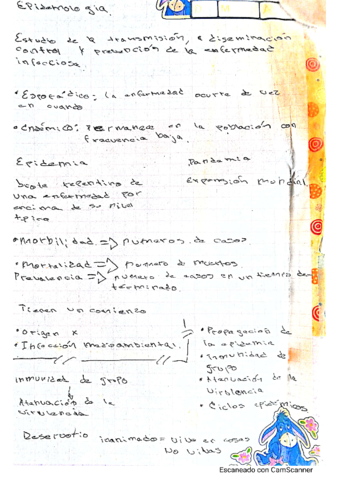 Epidemologia.
Estudio de la transmisión, e diseminación
control y prevención de la enfermedad
infecciosa.
• Esporádico: la enfermedad ocurre de vez
en cuando
• Endémico: Permanece en la población con
frecuencia baja.
Epidemia
Brote repentino de
una enfermedad por
encima de su nivel
típico
Pandemia
Expansión mundial
• Morbilidad => numeros de casos
• Mortalidad => numero de muertos
Prevalencia => numero de casos en un tiempo de-
terminado.
Tienen un comienzo
• Origen x
• Infección medioambiental.
• Propagación de
la epidemia
• Inmunidad de
grupo
• Atenuación de la
virulencia
• Ciclos epidémicos
inmunidad de grupo
Atenuación de la
virulencia
Reservorio inanimado = vivo en cosas
No vivas
Escaneado con CamScanner